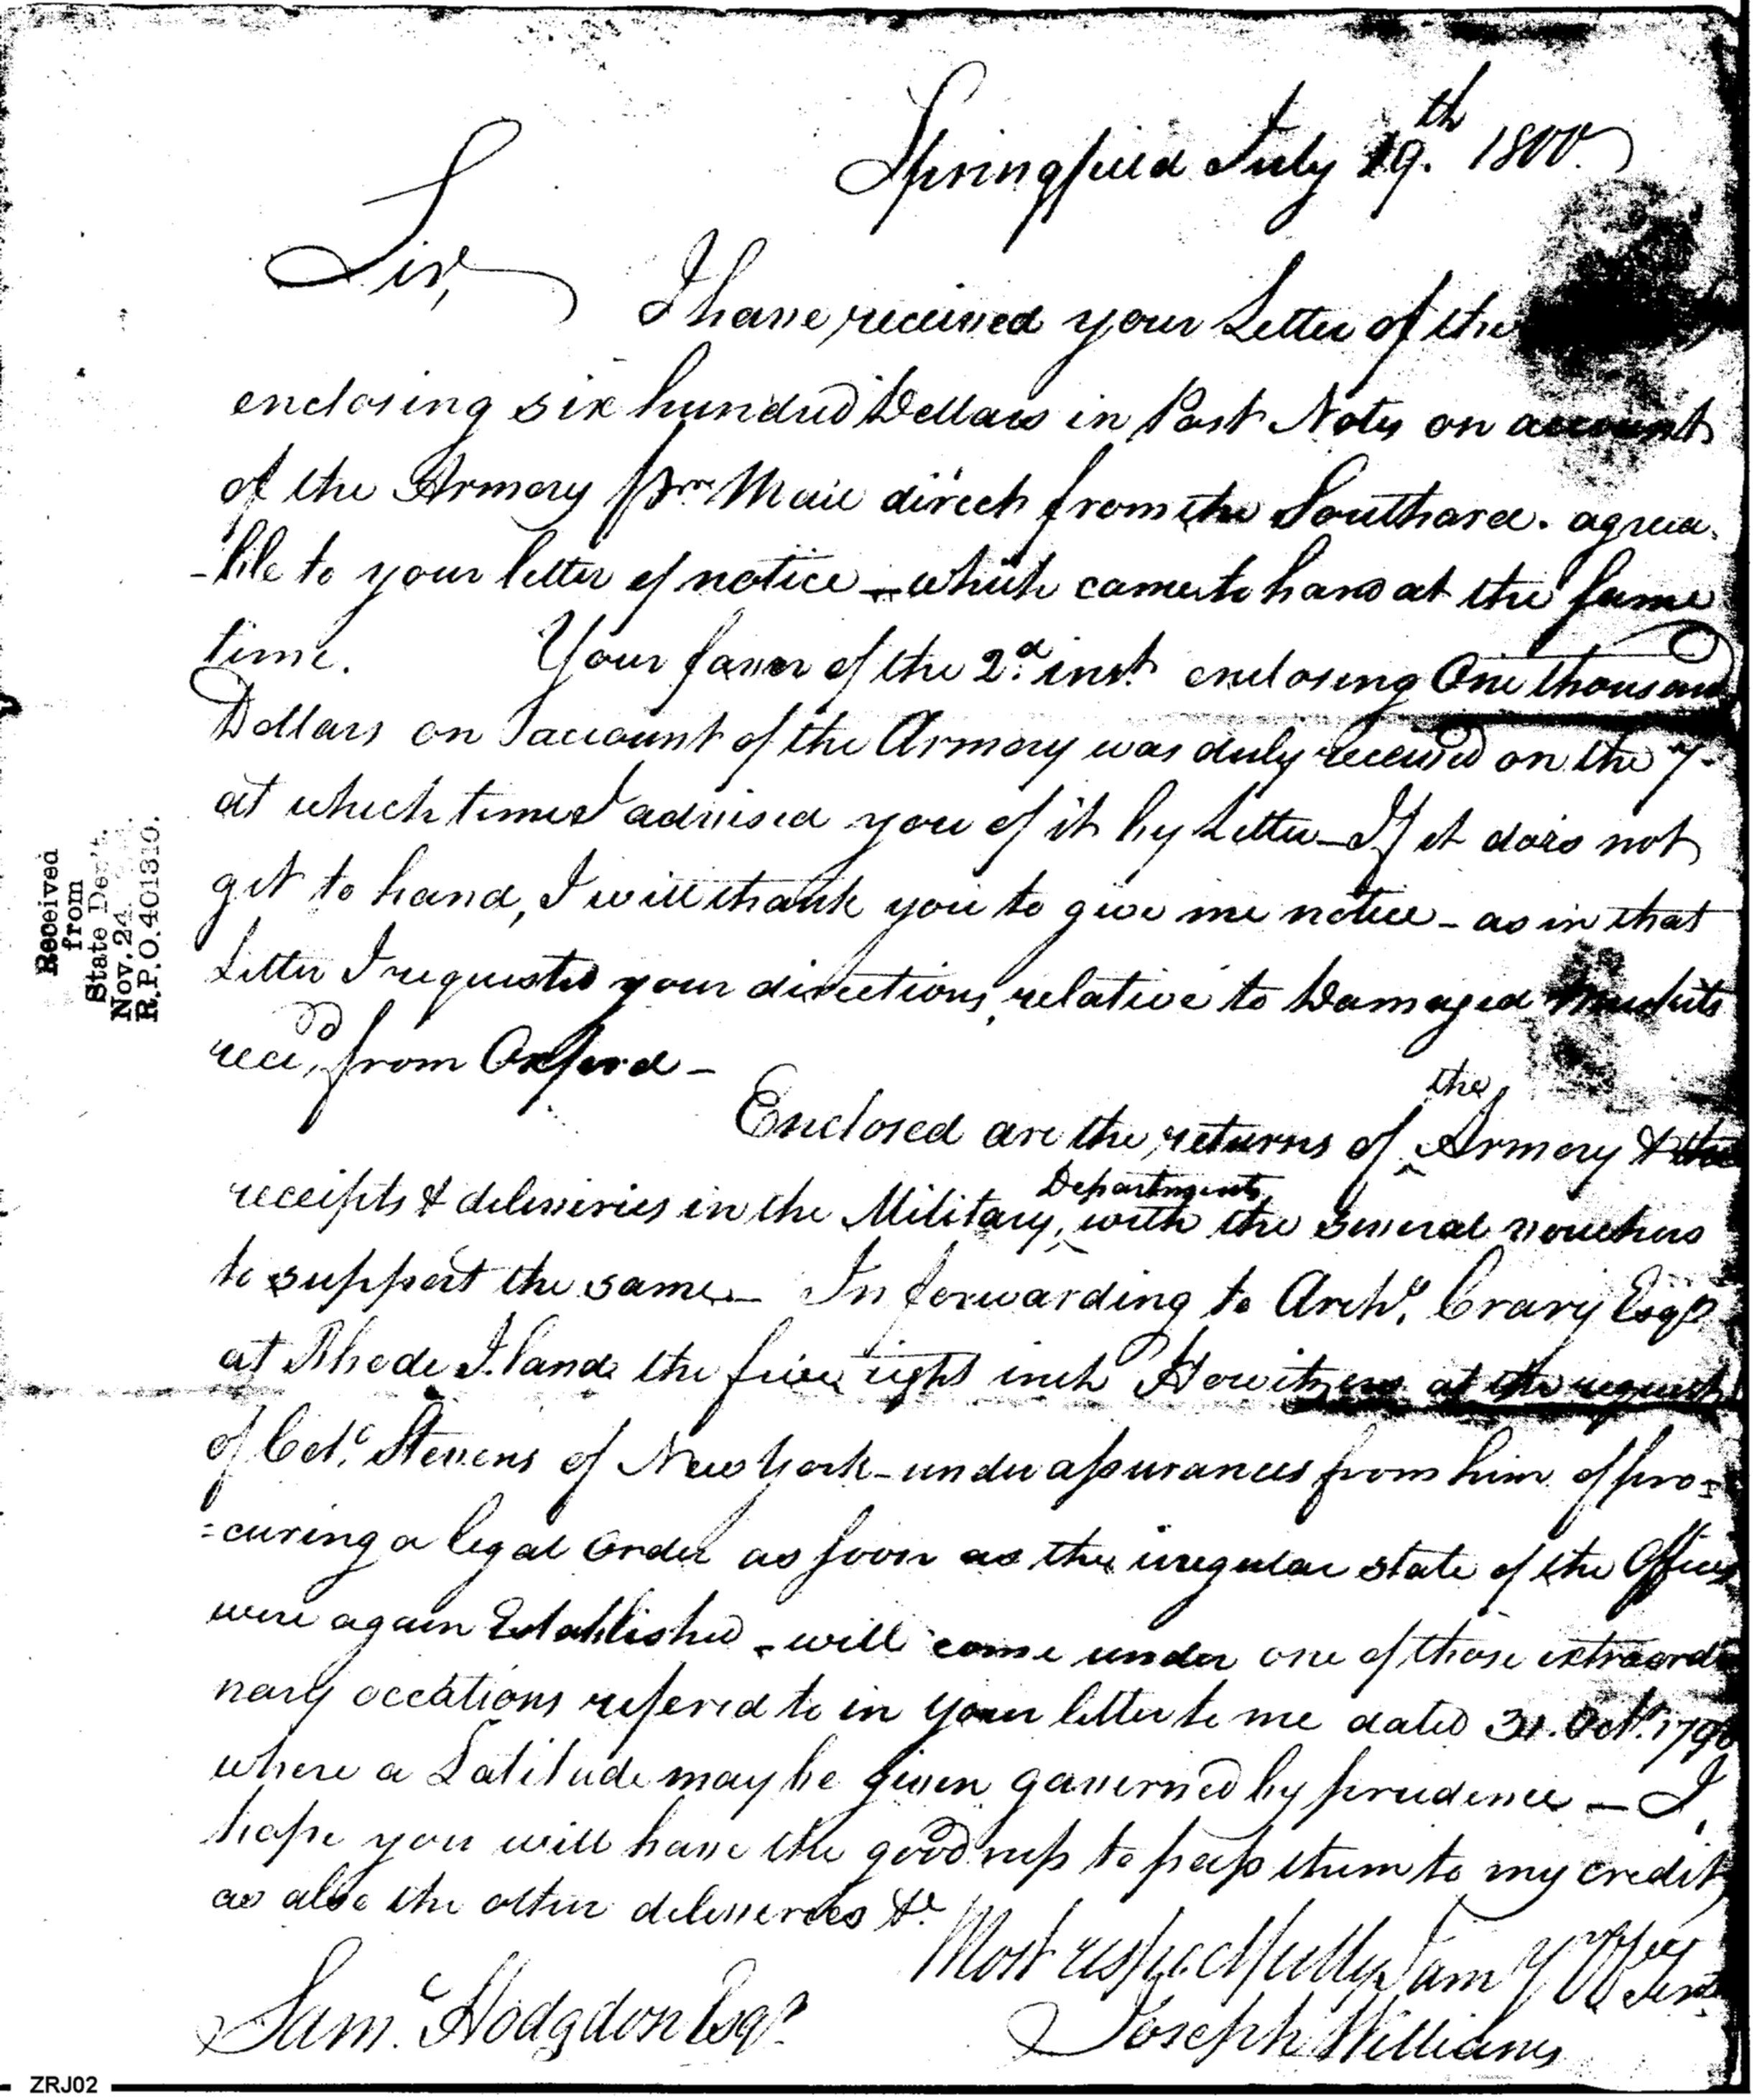 Springfield July 19th. 1800.
Sir,
I have received your Letter of the
enclosing six hundred Dollars in Post Notes on account
of the Armory pr. Mail direct from the Southard. agreea-
-ble to your letter of notice – which came to hand at the same
time. Your favor of the 2d. inst. enclosing One thousand
Dollars on account of the Armory was duly received on the 7-
at which time I advised you of it by Letter – If it does not
get to hand, I will thank you to give me notice – as in that
Letter I requested your directions, relative to Damaged Muskets
recd, from Oxford –
Enclosed are the returns of the Armory & the
receipts & deliveries in the Military Departments, with the several vouchers
to support the same. – In forwarding to Archd. Crary Esqr
at Rhode Island the five eight inch Howitzers at the request
of Colc. Stevens of New York – under assurances from him of pro-
=curing a legal order as soon as the irregular state of the Offices
were again Established – will come under one of those extraordi
nary occations refered to in your letter to me dated 31. Octr. 1798
where a Latitude may be given governed by prudence – I
hope you will have the goodness to pass them to my credit,
as also the other deliveries &c.
Most respectfully I am Yr Obt Ser
Joseph Williams
Saml. Hodgdon Esqr.
Received
from
State Dep't.
Nov. 24
R.P.O. 401310.
ZRJ02